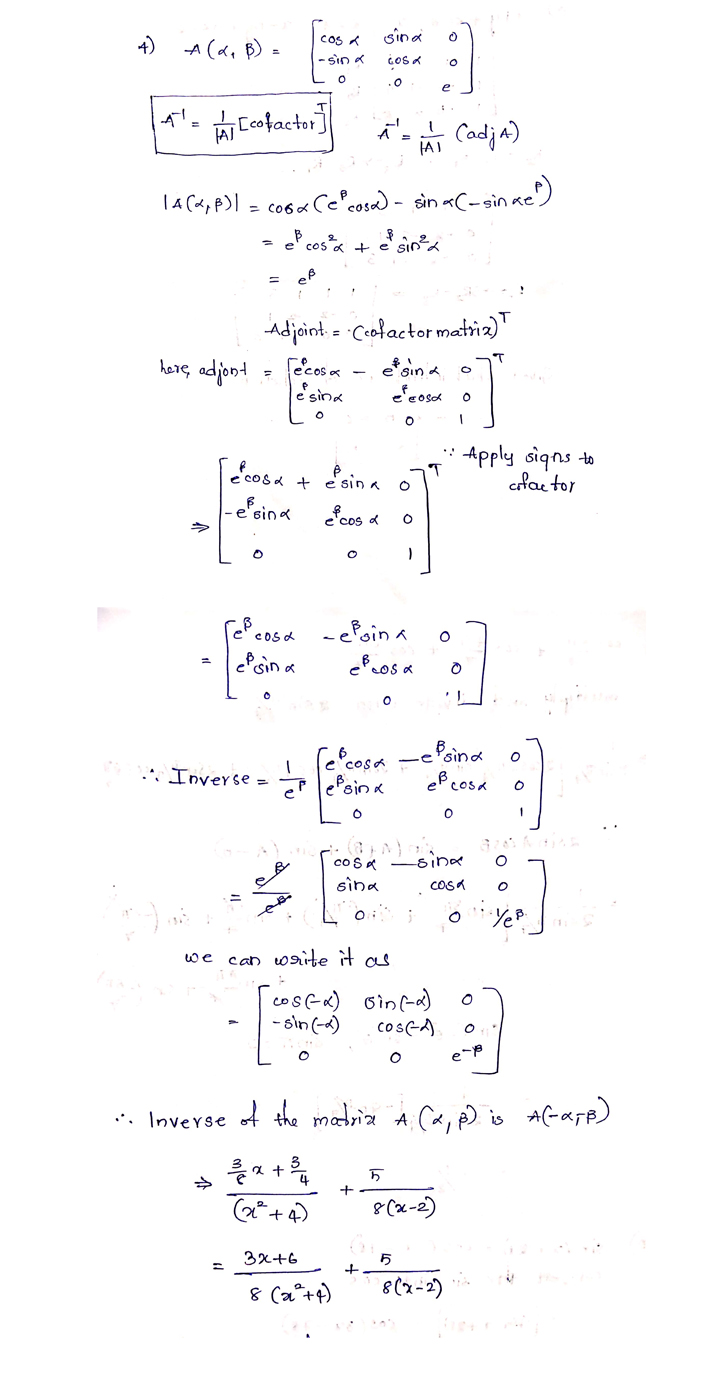 4) A(α, β) = [cos α sin α 0
-sin α cos α 0
0 0 e]
A⁻¹ = 1/|A| [cofactor]ᵀ A⁻¹ = 1/|A| (adj A)
|A(α,β)| = cosα (e^β cosα) - sin α(-sin α e^β)
= e^β cos²α + e^β sin²α
= e^β
Adjoint = (cofactor matrix)ᵀ
here, adjont = [e^β cos α - e^β sin α 0
e^β sin α e^β cosα 0
0 0 1]ᵀ
∵ Apply signs to
cfactor
⇒ [e^β cos α + e^β sin α 0
-e^β sin α e^β cos α 0
0 0 1]ᵀ
= [e^β cos α -e^β sin α 0
e^β sin α e^β cos α 0
0 0 1]
∴ Inverse = 1/e^β [e^β cosα -e^β sinα 0
e^β sin α e^β cosα 0
0 0 1]
= e^β/e^β [cos α -sin α 0
sin α cos α 0
0 0 1/e^β]
we can write it as
= [cos(-α) sin(-α) 0
-sin(-α) cos(-α) 0
0 0 e^-β]
∴ Inverse of the matrix A(α, β) is A(-α,-β)
⇒ (3/8 x + 3/4)/(x²+4) + 5/8(x-2)
= 3x+6/8(x²+4) + 5/8(x-2)